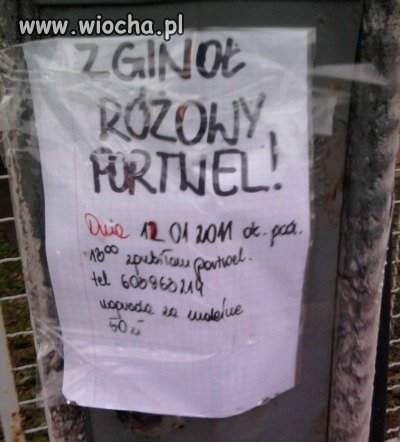 www.wiocha.pl
ZGINOŁ
RÓŻOWY
PORTWEL!
Dnia 12.01.2011 ok. godz.
13⁰⁰ zgubiłam portwel.
tel 608968219
nagroda za znaleźne
50 zł